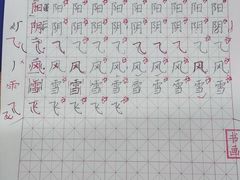 阳 阳 阳 阳 阳 阳 阳 阳 阳
阴 阴 阴 阴 阴 阴 阴 阴 阴
飞 飞 飞 飞 飞 飞 飞 飞 飞
风 风 风 风 风 风 风 风 风
雪 雪 雪 雪 雪 雪 雪 雪 雪
飞 飞 飞 飞 飞
书画